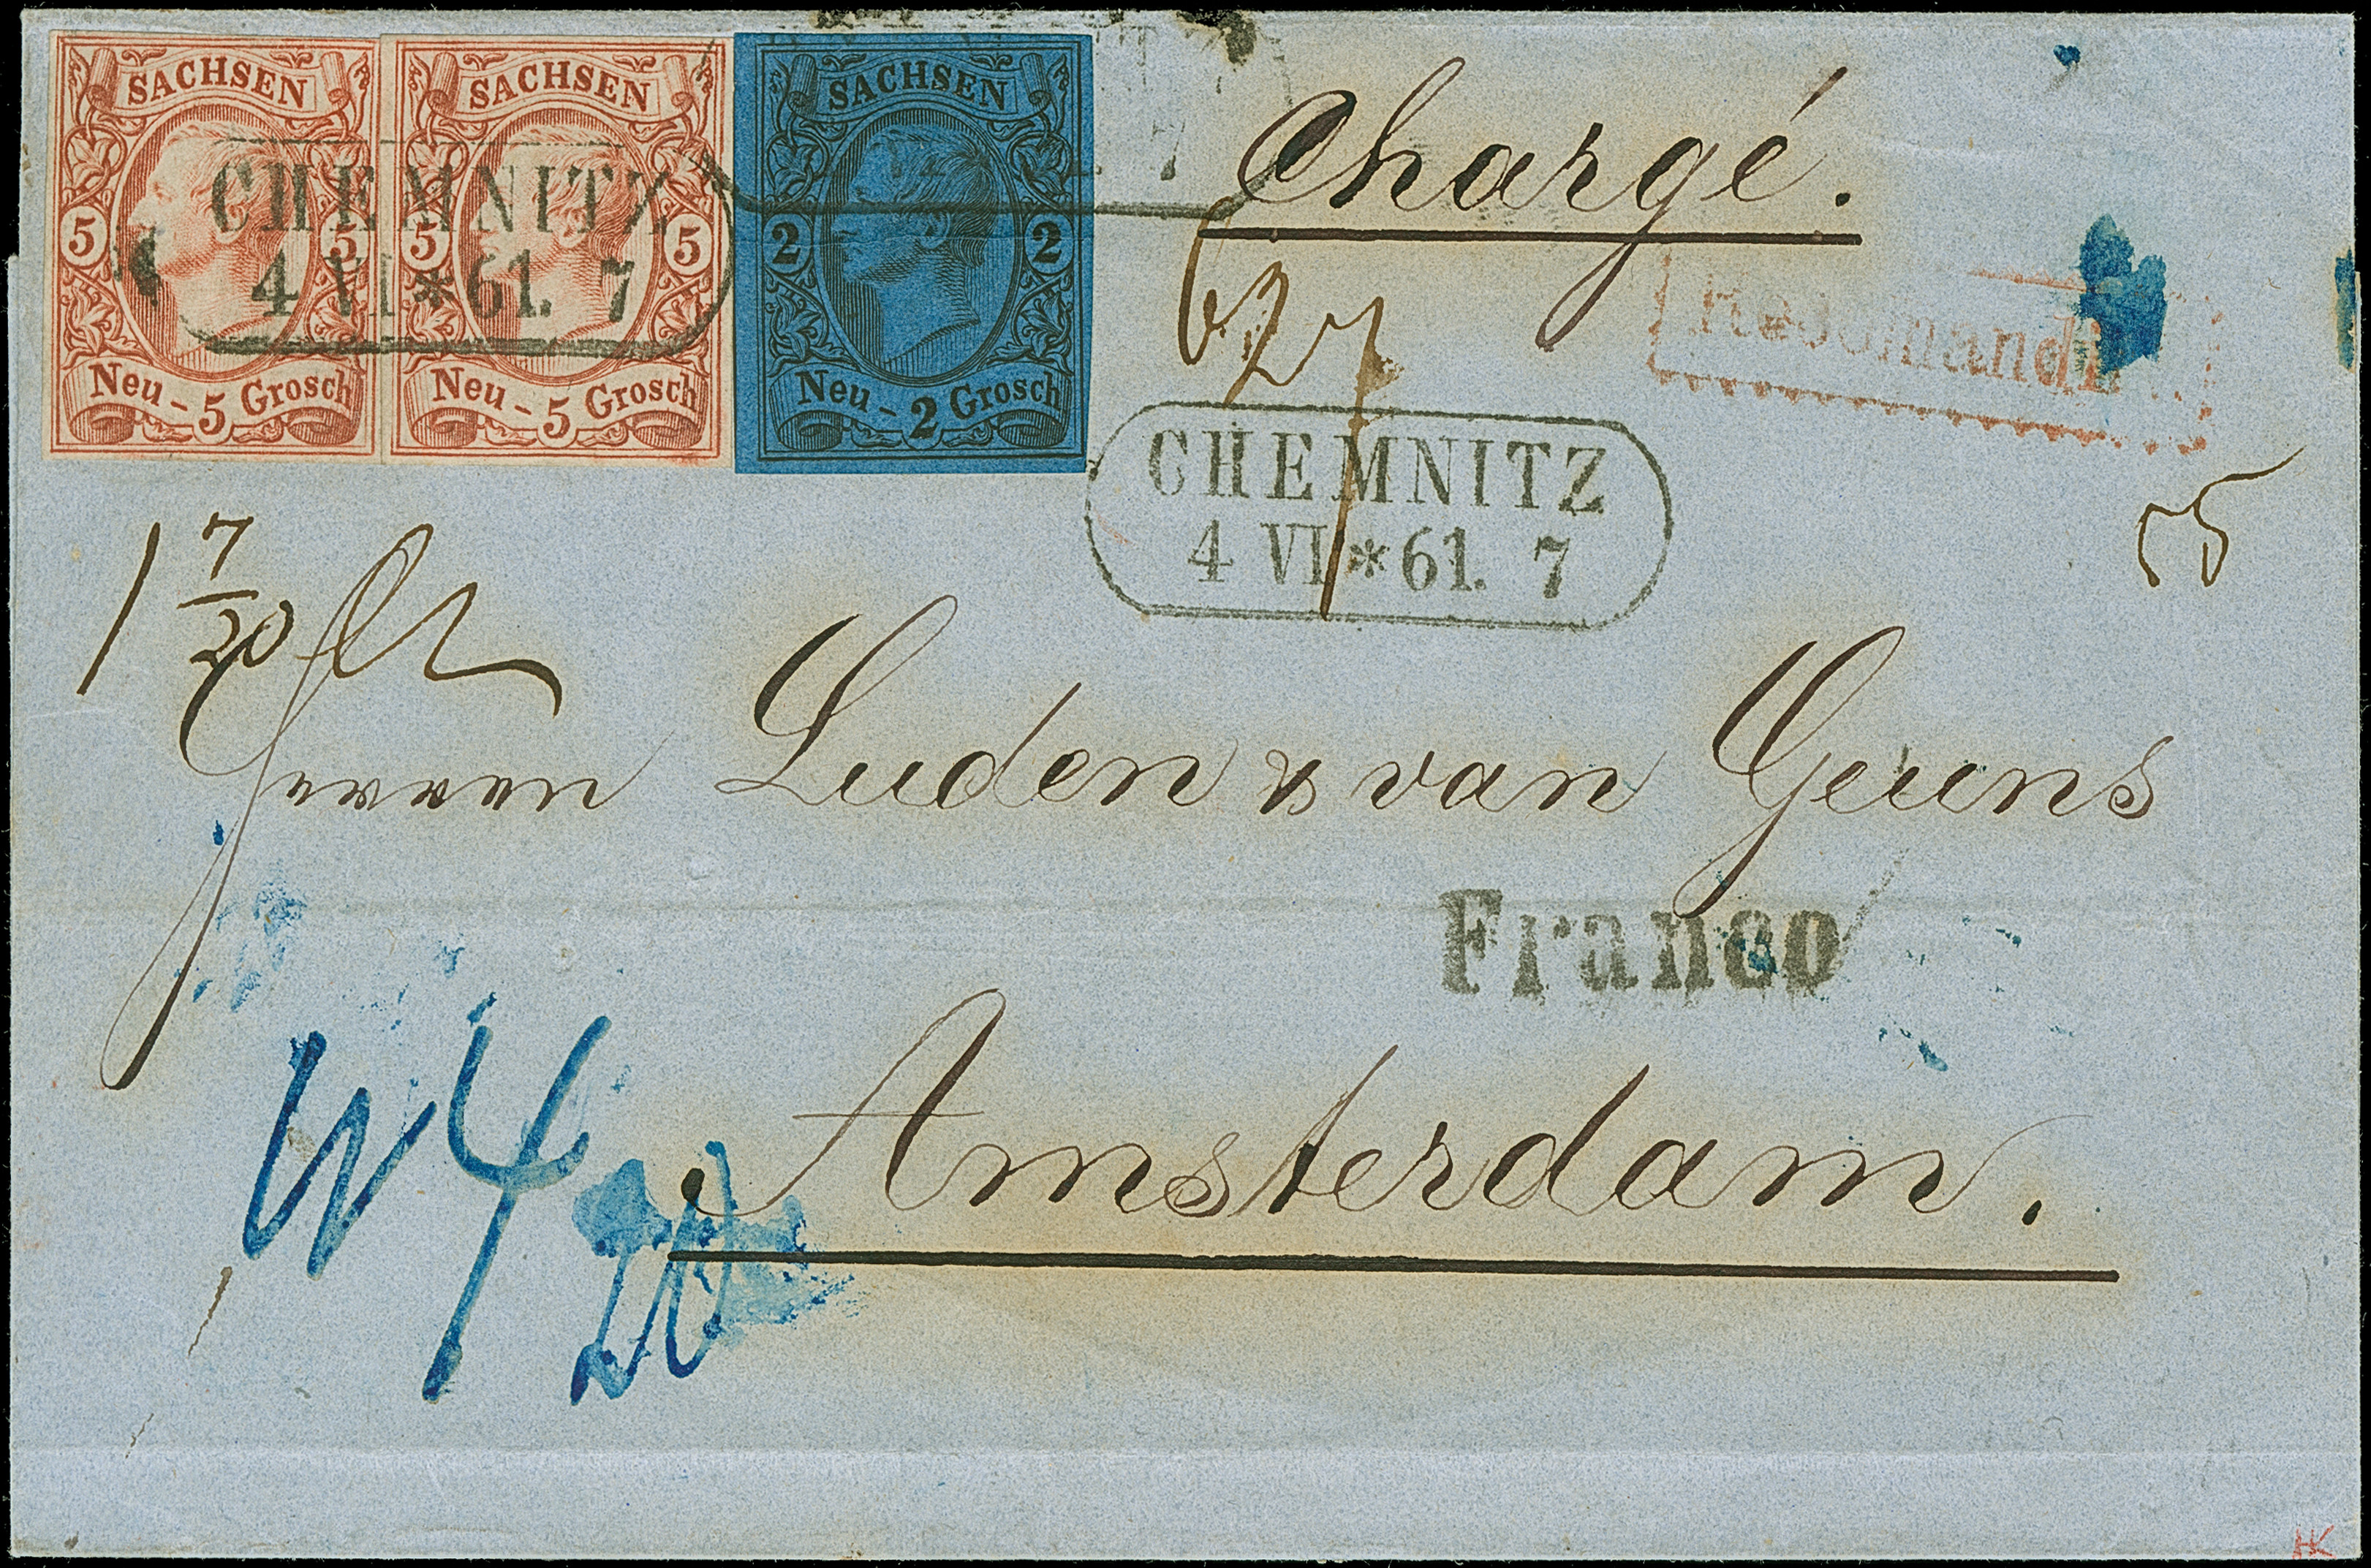 SACHSEN
5 5
Neu - 5 Grosch
SACHSEN
5 5
Neu - 5 Grosch
SACHSEN
2 2
Neu - 2 Grosch
CHEMNITZ
4 VI * 61. 7
Chargé.
627
Recomandirt
CHEMNITZ
4 VI * 61. 7
1 7/20
Herren Luden & van Geuns
Franco
Amsterdam.
4
20
HK